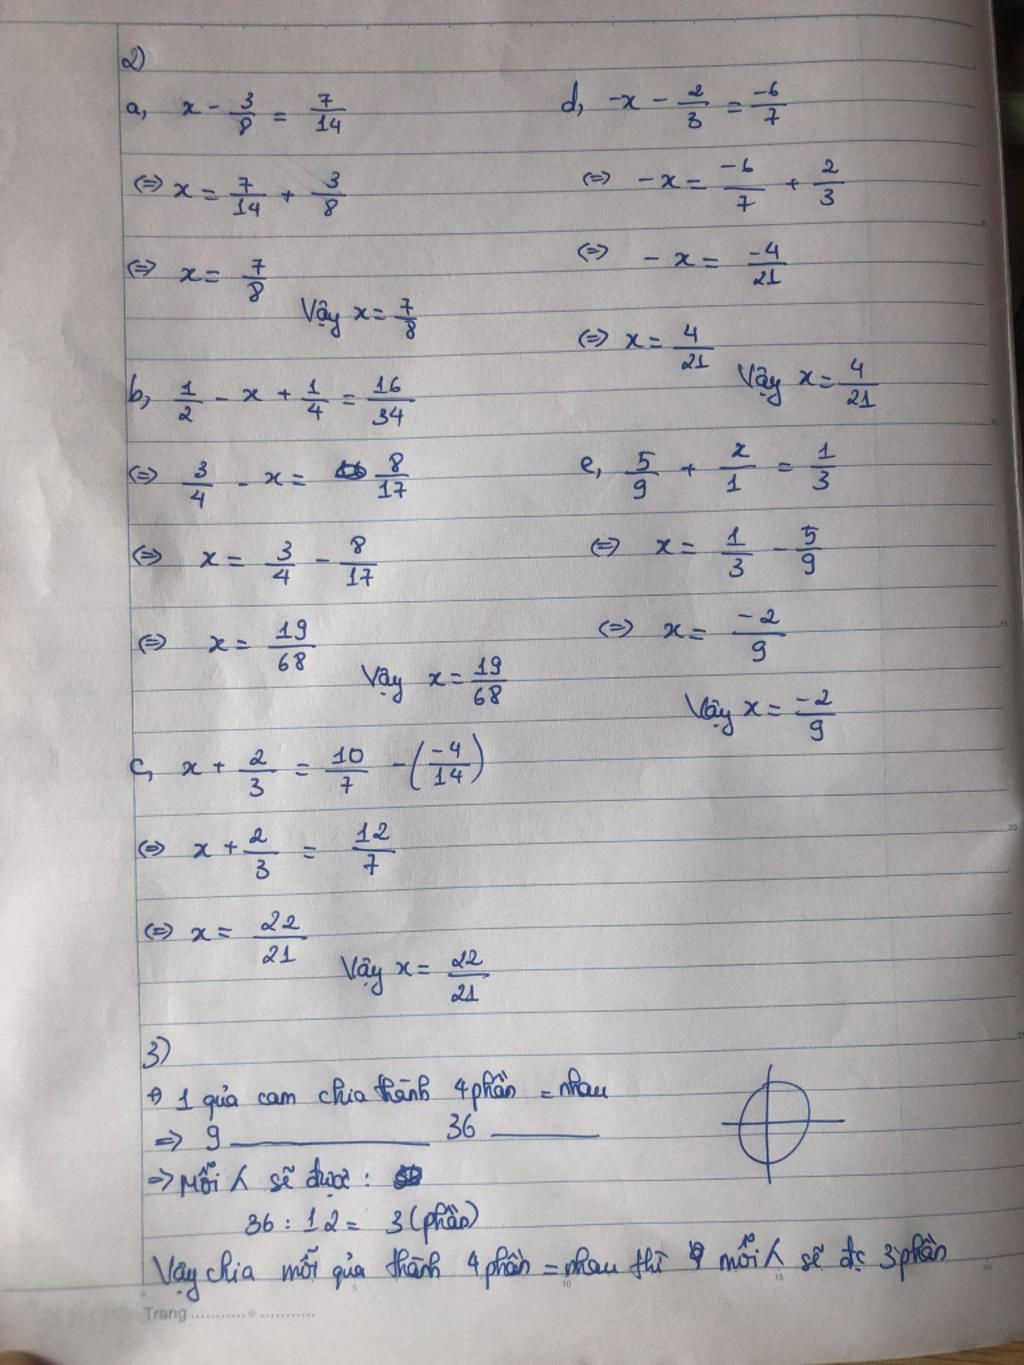 2)
a, x - 3/8 = 7/14
⇔ x = 7/14 + 3/8
⇔ x = 7/8
Vậy x = 7/8
b, 1/2 - x + 1/4 = 16/34
⇔ 3/4 - x = 8/17
⇔ x = 3/4 - 8/17
⇔ x = 19/68
Vậy x = 19/68
c, x + 2/3 = 10/7 - (-4/14)
⇔ x + 2/3 = 12/7
⇔ x = 22/21
Vậy x = 22/21
d, -x - 2/3 = -6/7
⇔ -x = -6/7 + 2/3
⇔ -x = -4/21
⇔ x = 4/21
Vậy x = 4/21
e, 5/9 + x/1 = 1/3
⇔ x = 1/3 - 5/9
⇔ x = -2/9
Vậy x = -2/9
3)
1 quả cam chia thành 4 phần = nhau
⇒ 9 ——— 36 ———
⇒ Mỗi λ sẽ được :
36 : 12 = 3 (phần)
Vậy chia mỗi quả thành 4 phần = nhau thì mỗi λ sẽ đc 3 phần
Trang